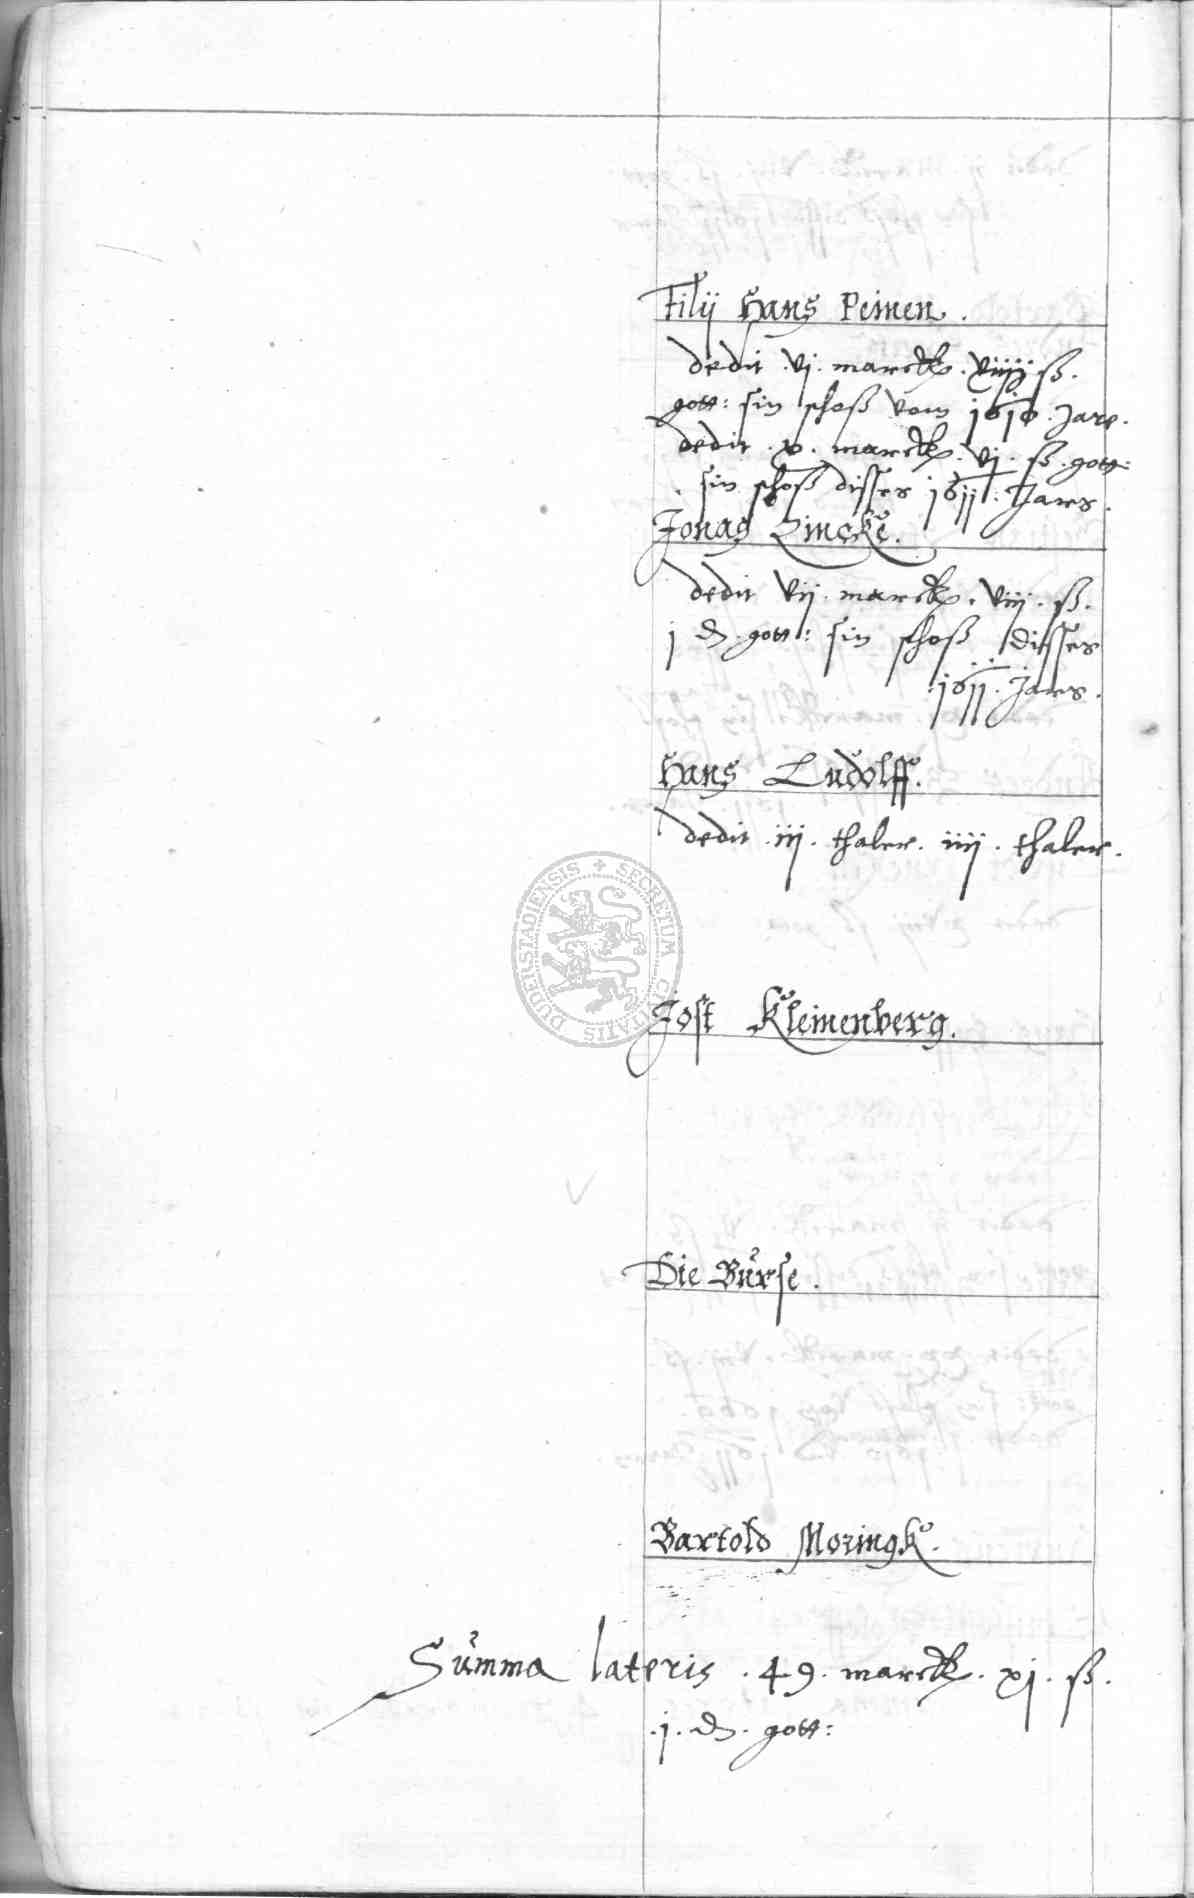 Filij Hans Peinen.
dedit .vj. marck. viiij ß.
gott: sin schoß vom 1610. Jare.
dedit .v. marck. vj. ß. gott:
sin schoß disses 1611. Jars.
Jonas Zincke.
dedit vij. marck. viij. ß.
j d. gott: sin schoß disses
.1611. Jars.
Hans Ludolff.
dedit .iij. thaler. iiij. thaler.
SECRETUM CIVITATIS DUDERSTADIENSIS
Jost Kleinenberg.
Die Burse.
Bartold Moringk.
Summa lateris .49. marck. xj. ß.
.j. d. gott: